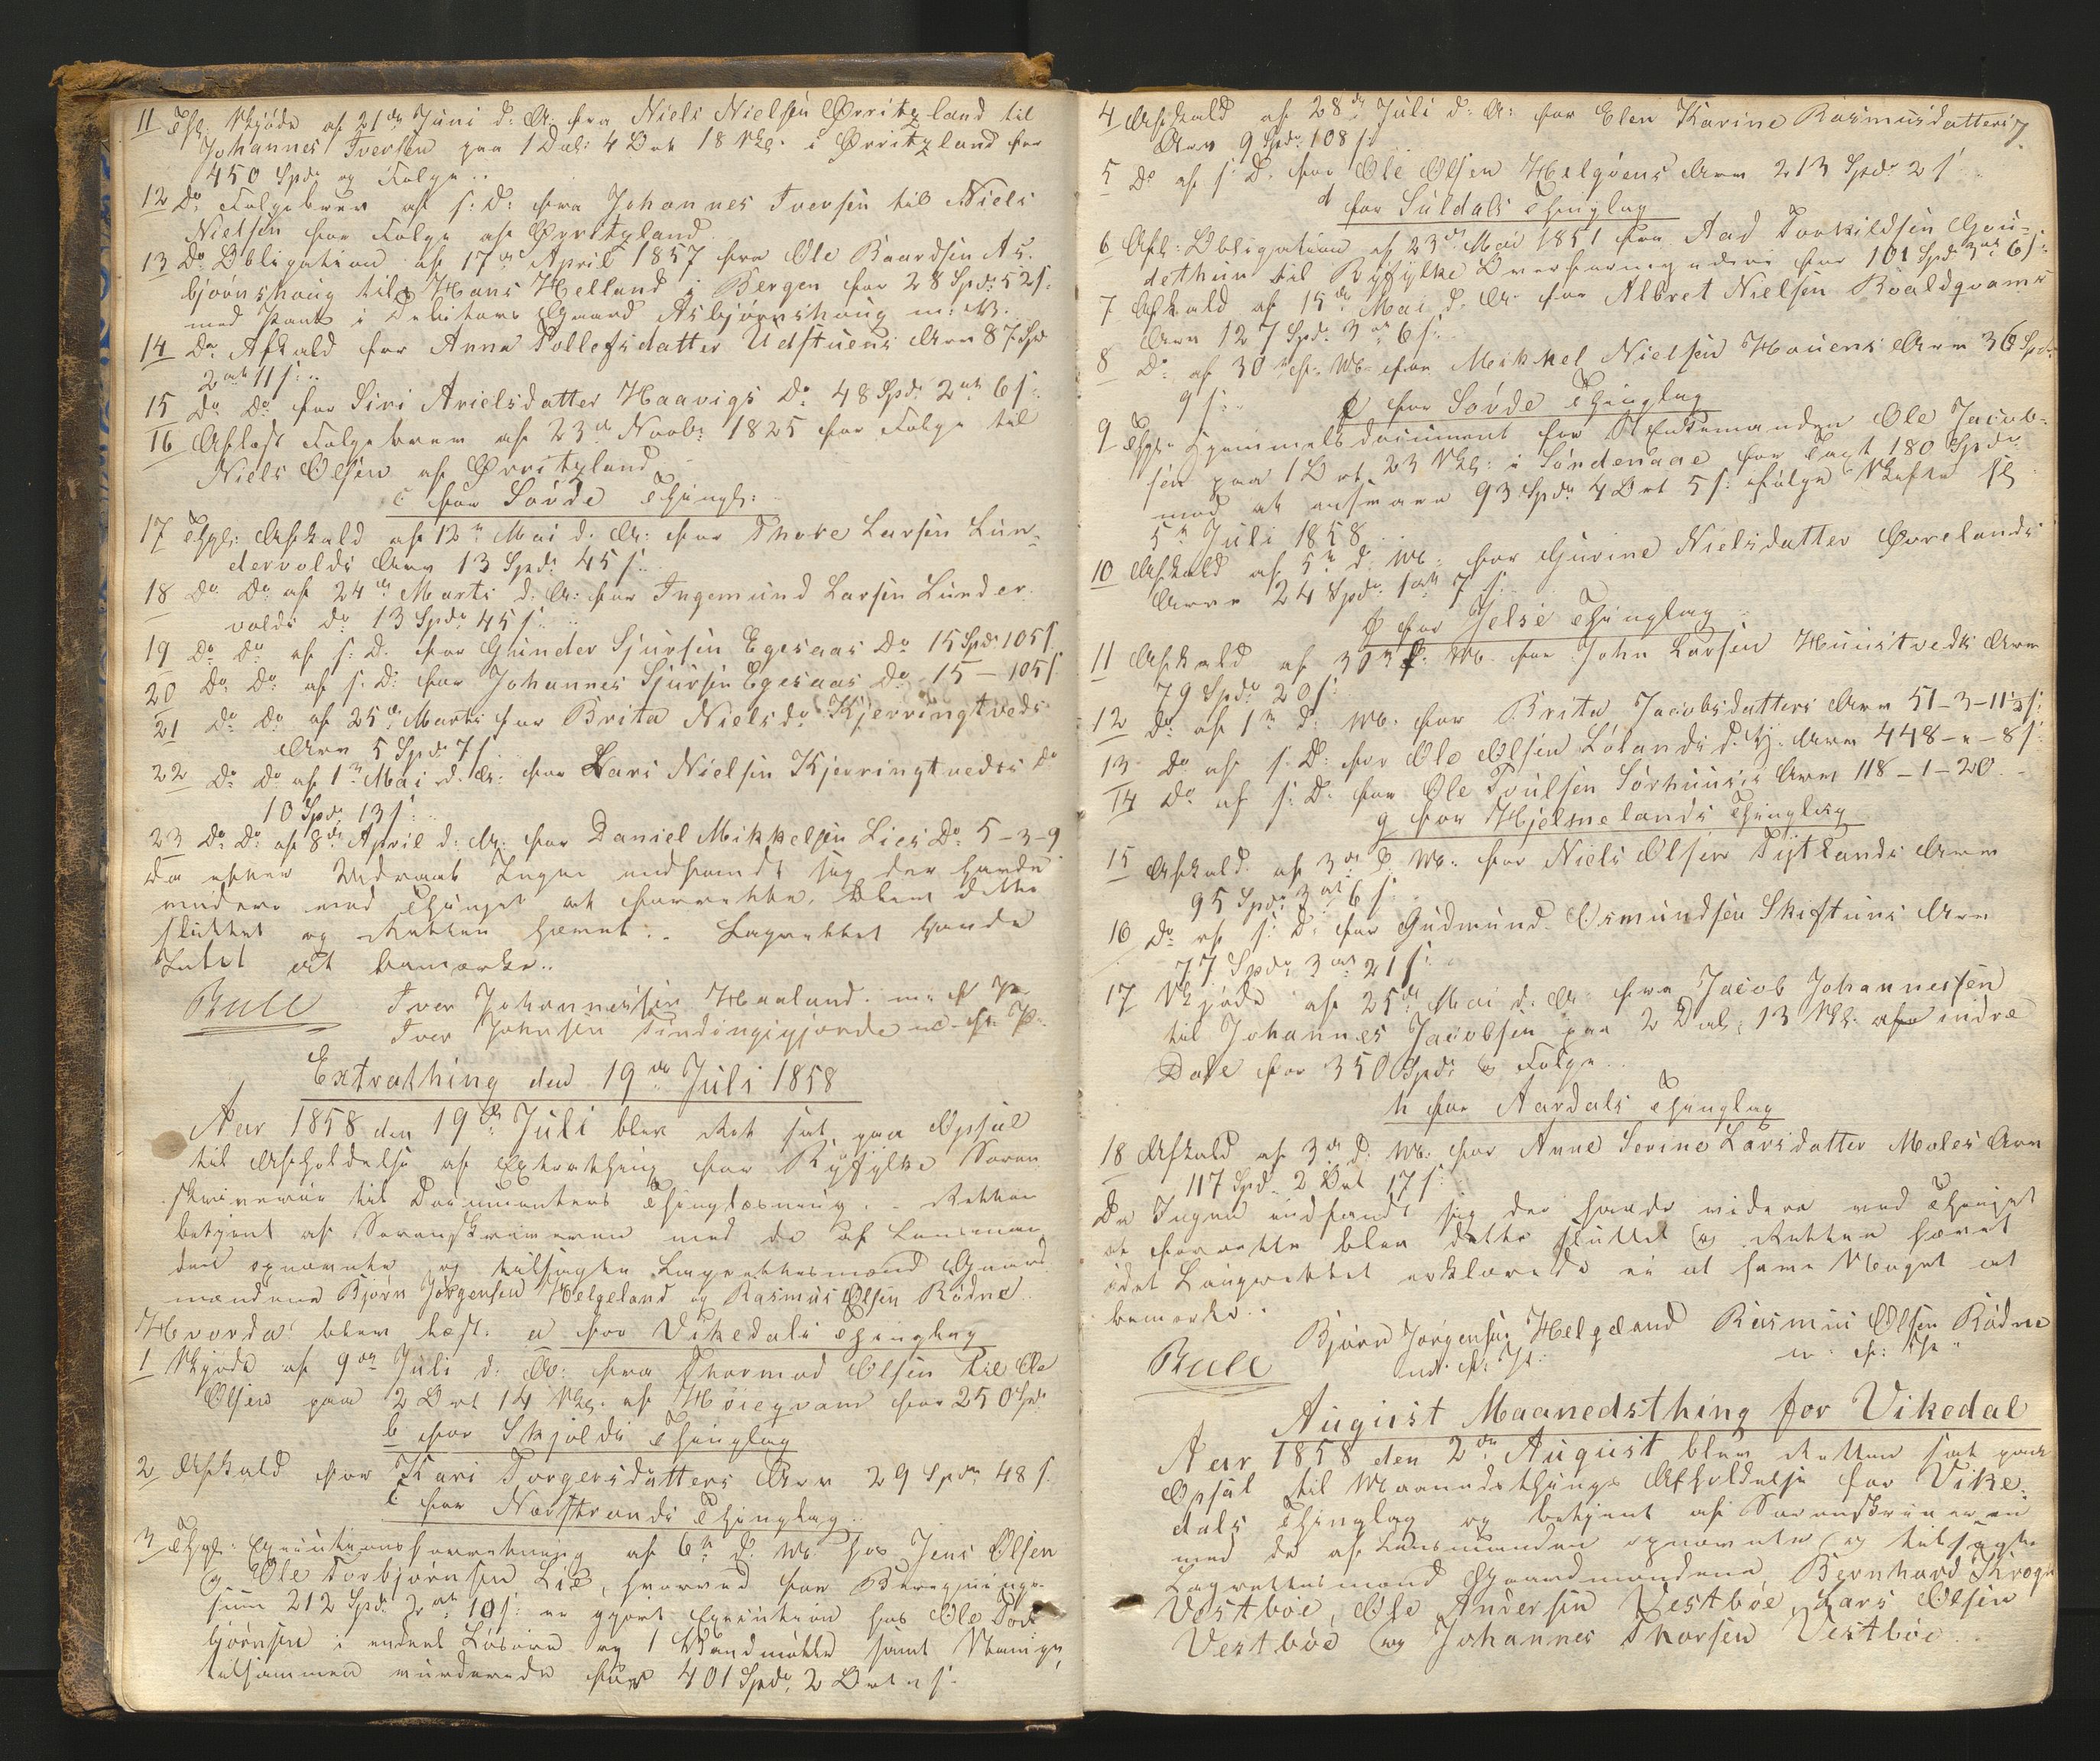 11 Thgl. Skjøde af 21de Juni d. A. fra Niels Nielsen Ørritzland til
Johannes Iversen paa 1 Dal: 4 Ort 18 Skl. i Ørritzland for
450 Spd. og Folge..
12 Do Folgebrev af s. D. fra Johannes Iversen til Niels
Nielsen for Folge af Ørritzland
13 Do Obligation af 17de April 1857 fra Ole Baardsen As-
bjørnshaug til Hans Helland i Bergen for 28 Spd. 52 s.
med Pant i Debitors Gaard Asbjørnshaug m: V.
14 Do Afkald for Anna Tollefsdatter Udstuens Arv 87 Spd
2 ort 11 s:..
15 Do Do for Siri Arielsdatter Haavigs Do 48 Spd. 2 ort 6 s:
16 Aflæst Folgebrev af 23de Novb: 1825 for Folge til
Niels Olsen af Ørritzland
c for Søvde Thingl:
17 Thgl: Afkald af 12te Mai d. A. for Thore Larsen Lun-
dervolds Arv 13 Spd. 45 s..
18 Do Do af 24de Marts d. A. for Ingemund Larsen Lunder
volds Do 13 Spd. 45 s..
19 Do Do af s. D. for Gunder Sjursen Egesaas Do 15 Spd. 105 s.
20 Do Do af s. D: for Johannes Sjursen Egesaas Do 15 – 105 s
21 Do Do af 25de Marts for Brita Nielsdr Kjerringtveds
Arv 5 Spd. 7 s
22 Do Do af 1ste Mai d. A. for Lars Nielsen Kjerringtvedts Do
10 Spd. 13 s:
23 Do Do af 8de April d. A. for Daniel Mikkelsen Lies Do 5-3-9
Da efter Udraab Ingen indfandt sig der havde
videre ved Thinget at forrette, blev dette
sluttet og Retten hævet.. Lagrettet havde
Intet at bemærke..
Bull Iver Johannessen Haaland. m. f. P.
Iver Johnsen Tindingigjerde m. f. P.
Extrathing den 19de Juli 1858
Aar 1858 den 19de Juli blev Ret sat paa Opsal
til Afholdelse af Extrathing for Ryfylke Soren
skriverie til Documenters Thinglæsning. - Retten
betjent af Sorenskriveren med de af Lensman
den opnævnte og tilsagte Lagrettesmænd Gaard
mændene Bjørn Jørgensen Helgeland og Rasmus Olsen Rødne.
Hvorda blev læst: a for Vikedals Thinglag
1 Skjøde af 9de Juli d. A: fra Thormod Olsen til Ole
Olsen paa 2 Ort 14 Skl. af Høieqvam for 250 Spd.
b for Skjolds Thinglag
2 Afkald for Kari Torgersdatters Arv 29 Spd. 48 s.
c for Nærstrands Thinglag..
3 Thgl: Executionsforretning af 6te d. M. hos Jens Olsen
og Ole Torbjørnsen Lie, hvorved for Beregnings
sum 212 Spd. 2 ort 10 s. er gjort Execution hos Ole Tor-
bjørnsen i endeel Løsøre og 1 Vandmølle samt
tilsammen vurderede for 401 Spd. 2 Ort " s.
7
4 Afkald af 28de Juli d. A: for Elen Karine Rasmusdatters
Arv 9 Spd. 108 s:
5 Do af s. D. for Ole Olsen Helgøens Arv 213 Spd. 2 s
d for Suldals Thinglag
6 Afl: Obligation af 23de Mai 1851 fra Aad Torkildsen Gau-
dethun til Ryfylke Overformynderi for 101 Spd 3 ort 6 s.
7 Afkald af 15de Mai d. A. for Albret Nielsen Roaldqvams
Arv 127 Spd. 3 ort 6 s:
8 Do af 30te f. M. for Mikkel Nielsen Hauens Arv 36 Spd.
9 s..
e for Søvde Thinglag
9 Thgl. Hjemmelsdocument for Enkemanden Ole Jacob-
sen paa 1 Ort 23 Skl: i Søndenaae for Taxt 180 Spd.
mod at ansvare 93 Spd. 4 Ort 5 s. ifølge Skifte
5te Juli 1858
10 Afkald af 5te d. M. for Gurine Nielsdatter Øvrelands
Arv 24 Spd. 1 ort 7 s.
f for Jelse Thinglag
11 Afkald af 30te f. M. for John Larsen Huustvedts Arv
79 Spd. 20 s.
12 Do af 1ste d. M. for Brita Jacobsdatters Arv 51-3-11½ s.
13 Do af s. D. for Ole Olsen Lølands d. Y. Arv 448 – " – 8 s
14 Do af s. D: for Ole Poulsen Sørhuus's Arv 118-1-20..
g for Hjelmelands Thinglag
15 Afkald af 3die d. M. for Niels Olsen Tytlands Arv
95 Spd. 3 ort 6 s.
16 Do af s. D. for Gudmund Osmundsen Skiftuns Arv
77 Spd. 3 ort 21 s.
17 Skjøde af 25de Mai d. A. fra Jacob Johannessen
til Johannes Jacobsen paa 2 Dal: 13 Skl. af indre
Dale for 350 Spd. & Folge..
h for Aardals Thinglag
18 Afkald af 3die d. M. for Anne Serine Larsdatter Moles Arv
117 Spd. 2 Ort 17 s.
Da Ingen indfandt sig der havde videre ved Thinget
at forrette blev dette sluttet og Retten hævet
idet Laugrettet erklærede ei at have Noget at
bemærke..
Bull Bjørn Jørgensen Helgeland Rasmus Olsen Rødne
m. f. P. m. f. P.
August Maanedsthing for Vikedal
Aar 1858 den 2den August blev Retten sat paa
Opsal til Maanedsthings Afholdelse for Vike-
dals Thinglag og betjent af Sorenskriveren
med de af Lensmanden opnævnte og tilsagte
Lagrettesmænd Gaardmændene Bernhard Krogh
Vestbøe, Ole Andersen Vestbøe, Lars Olsen
Vestbøe og Johannes Thorsen Vestbøe..